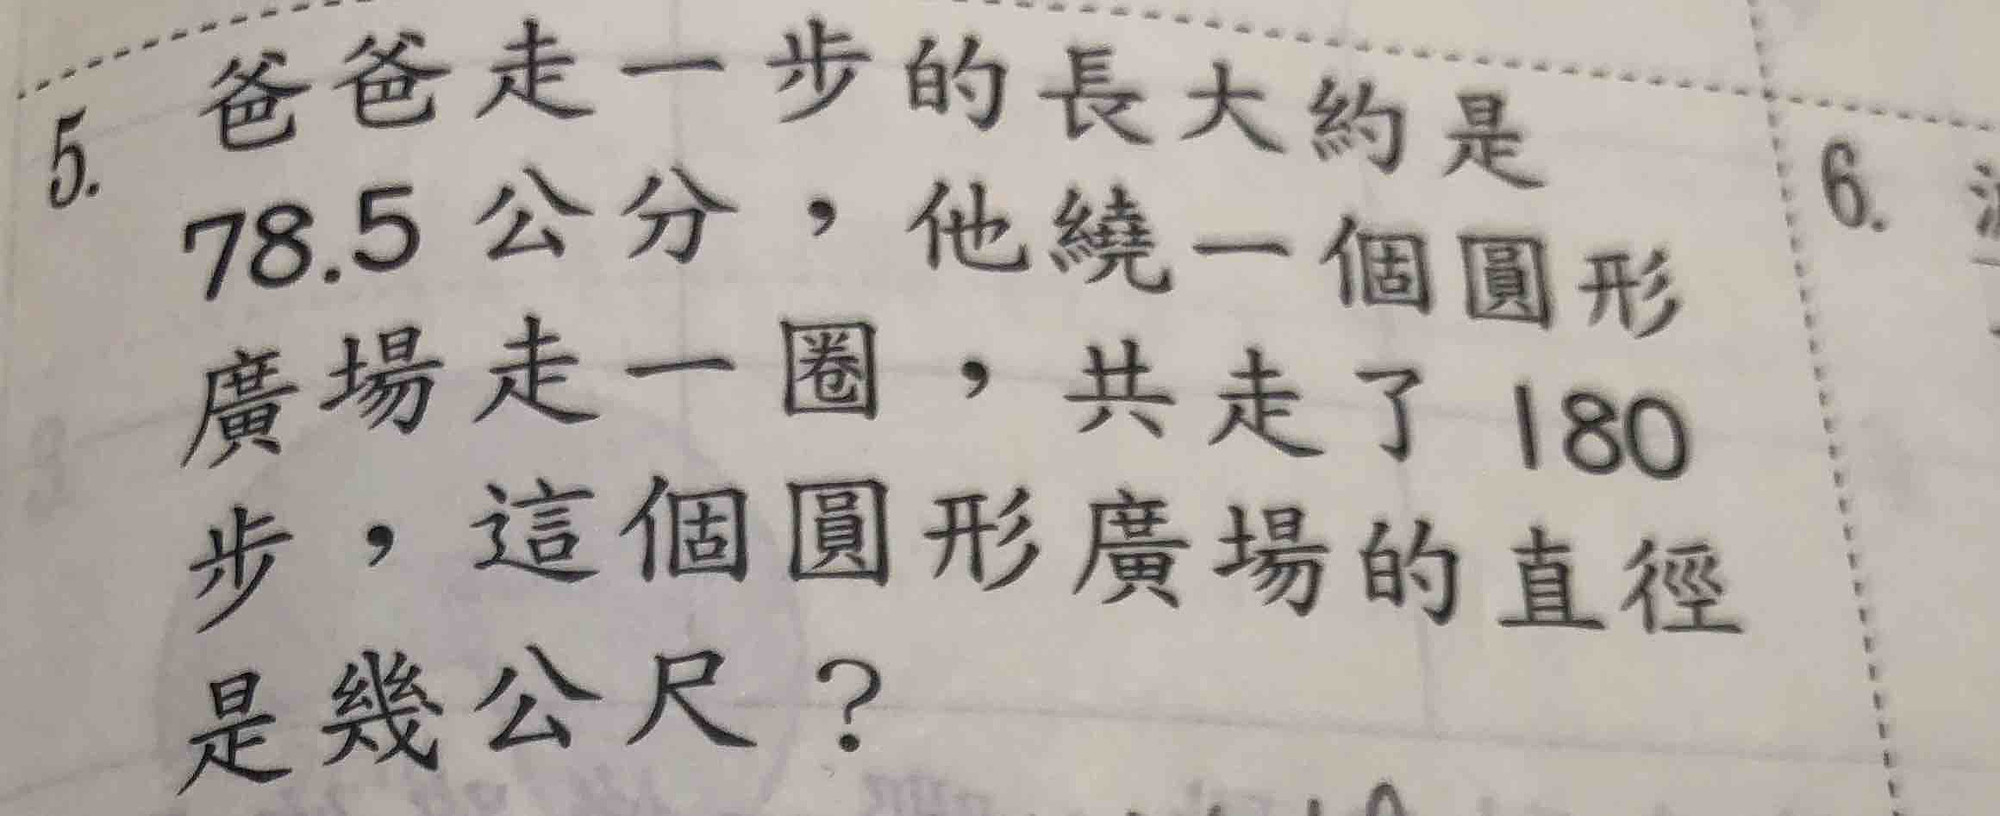 5. 爸爸走一步的長大約是
78.5公分，他繞一個圓形
廣場走一圈，共走了180
步，這個圓形廣場的直徑
是幾公尺？
6.